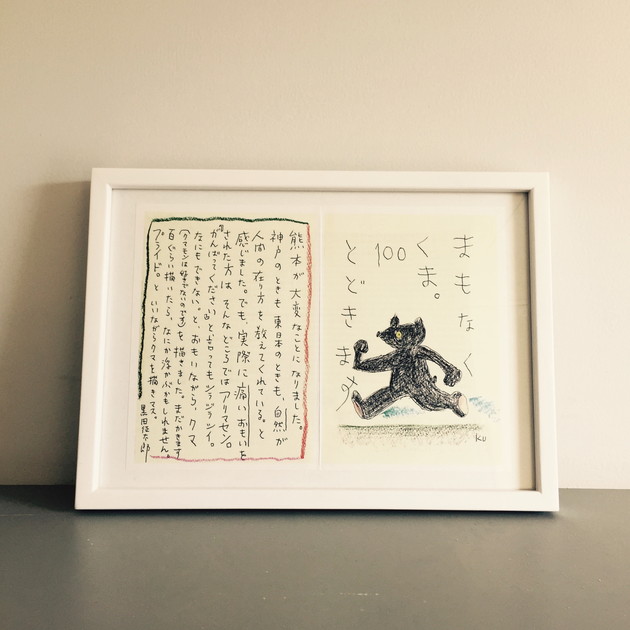 まもなく
くま。
100
とどきます
KU
熊本が大変なことになりました。
神戸のときも東日本のときも、自然が
人間の在り方を教えてくれている。と
感じました。でも、実際に痛いおもいを
された方はそんなどころではアリマセン。
『がんばってください』と言っても
なにもできない。と、おもいながら、クマ
(クマモンは好きでないのです)を描きました。まだかきます
百ぐらい描いたら、なにか浮かぶかもしれません。
プライド。と いいながらクマを描きマス。
黒田征太郎